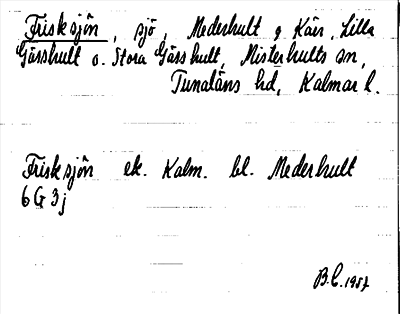 Frisksjön, sjö, Mederhult o Kärr, Lilla
Gässhult o. Stora Gässhult, Misterhults sn,
Tunaläns hd, Kalmar l.
Frisksjön ek. Kalm. bl. Mederhult
6G3j
B.C. 1957